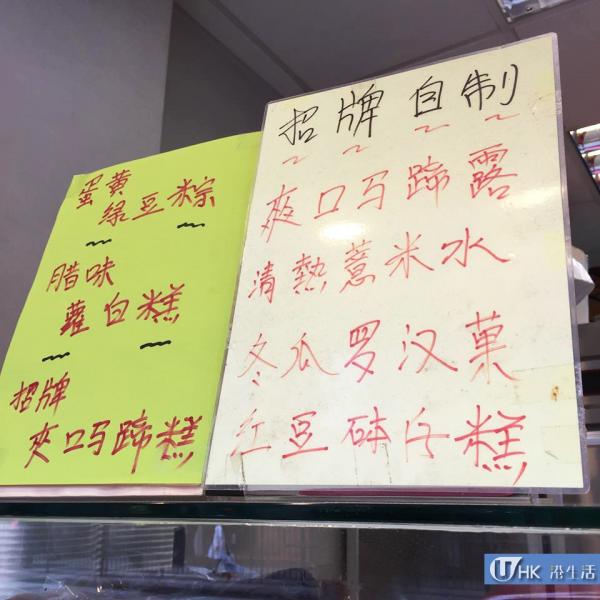 蛋黄
绿豆粽
腊味
蘿白糕
招牌
爽口马蹄糕
招牌自制
爽口马蹄露
清熱薏米水
冬瓜罗汉菓
红豆砵仔糕
UHK 港生活